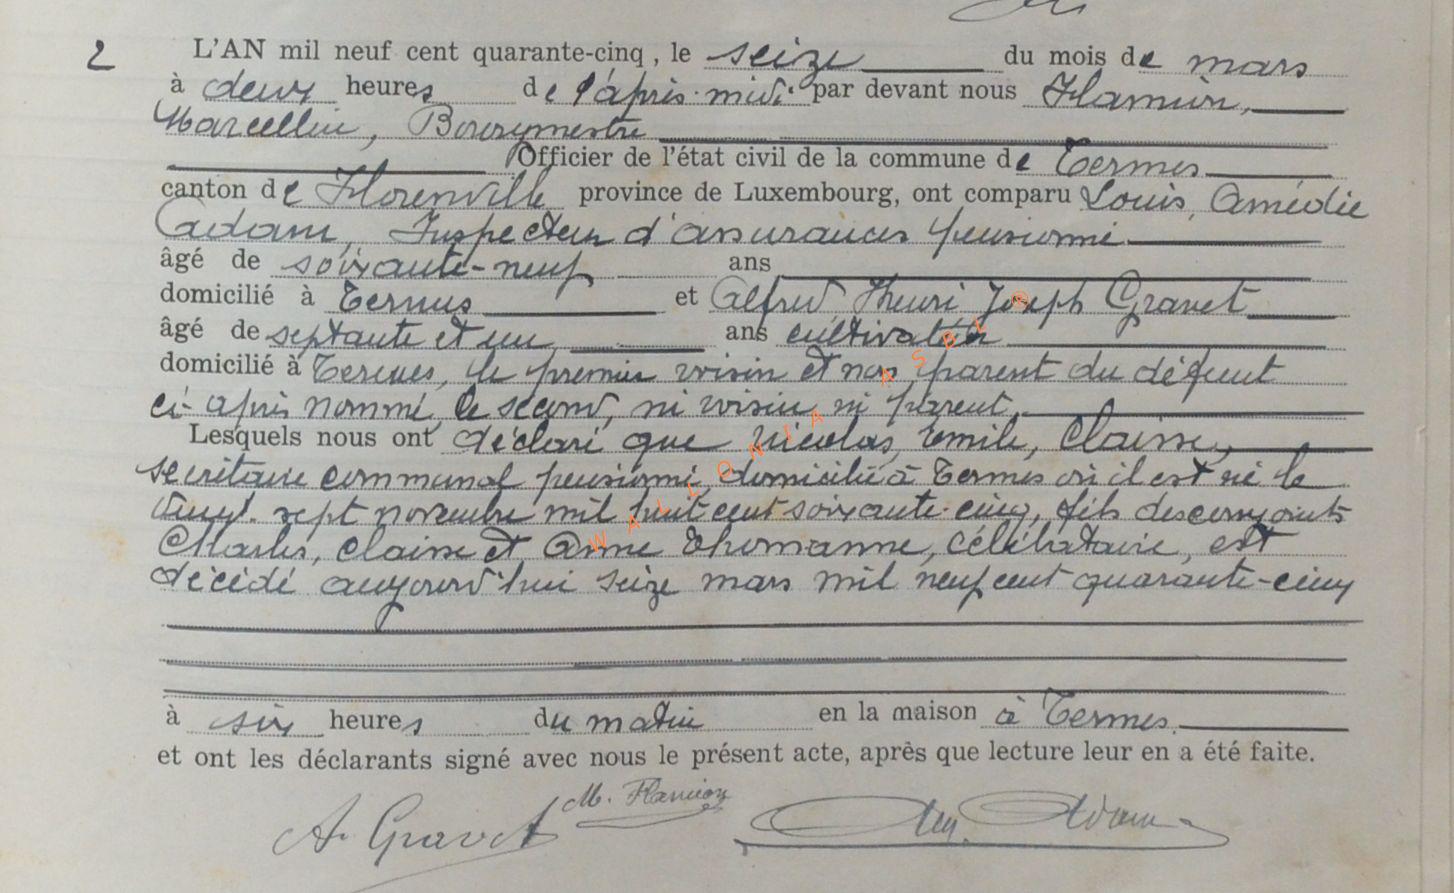 2
L'AN mil neuf cent quarante-cinq, le seize du mois de mars
à deux heures de l'après-midi par devant nous Flamion,
Marcellin, Bourgmestre
Officier de l'état civil de la commune de Termes
canton de Florenville province de Luxembourg, ont comparu Louis, Amédée
Adam, Inspecteur d'assurances pensionné
âgé de soixante-neuf ans
domicilié à Termes et Alfred Henri Joseph Gravet
âgé de septante et un ans cultivateur
domicilié à Termes, le premier voisin et non parent du défunt
ci-après nommé, le second, ni voisin ni parent,
Lesquels nous ont déclaré que Nicolas, Emile, Claisse,
secrétaire communal pensionné, domicilié à Termes où il est né le
vingt-sept novembre mil huit cent soixante-cinq, fils des conjoints
Charles, Claisse et Anne Thomanne, célibataire, est
décédé aujourd'hui seize mars mil neuf cent quarante-cinq
à six heures du matin en la maison à Termes
et ont les déclarants signé avec nous le présent acte, après que lecture leur en a été faite.
A. Gravet M. Flamion Adam
WALLONIA ASBL ®